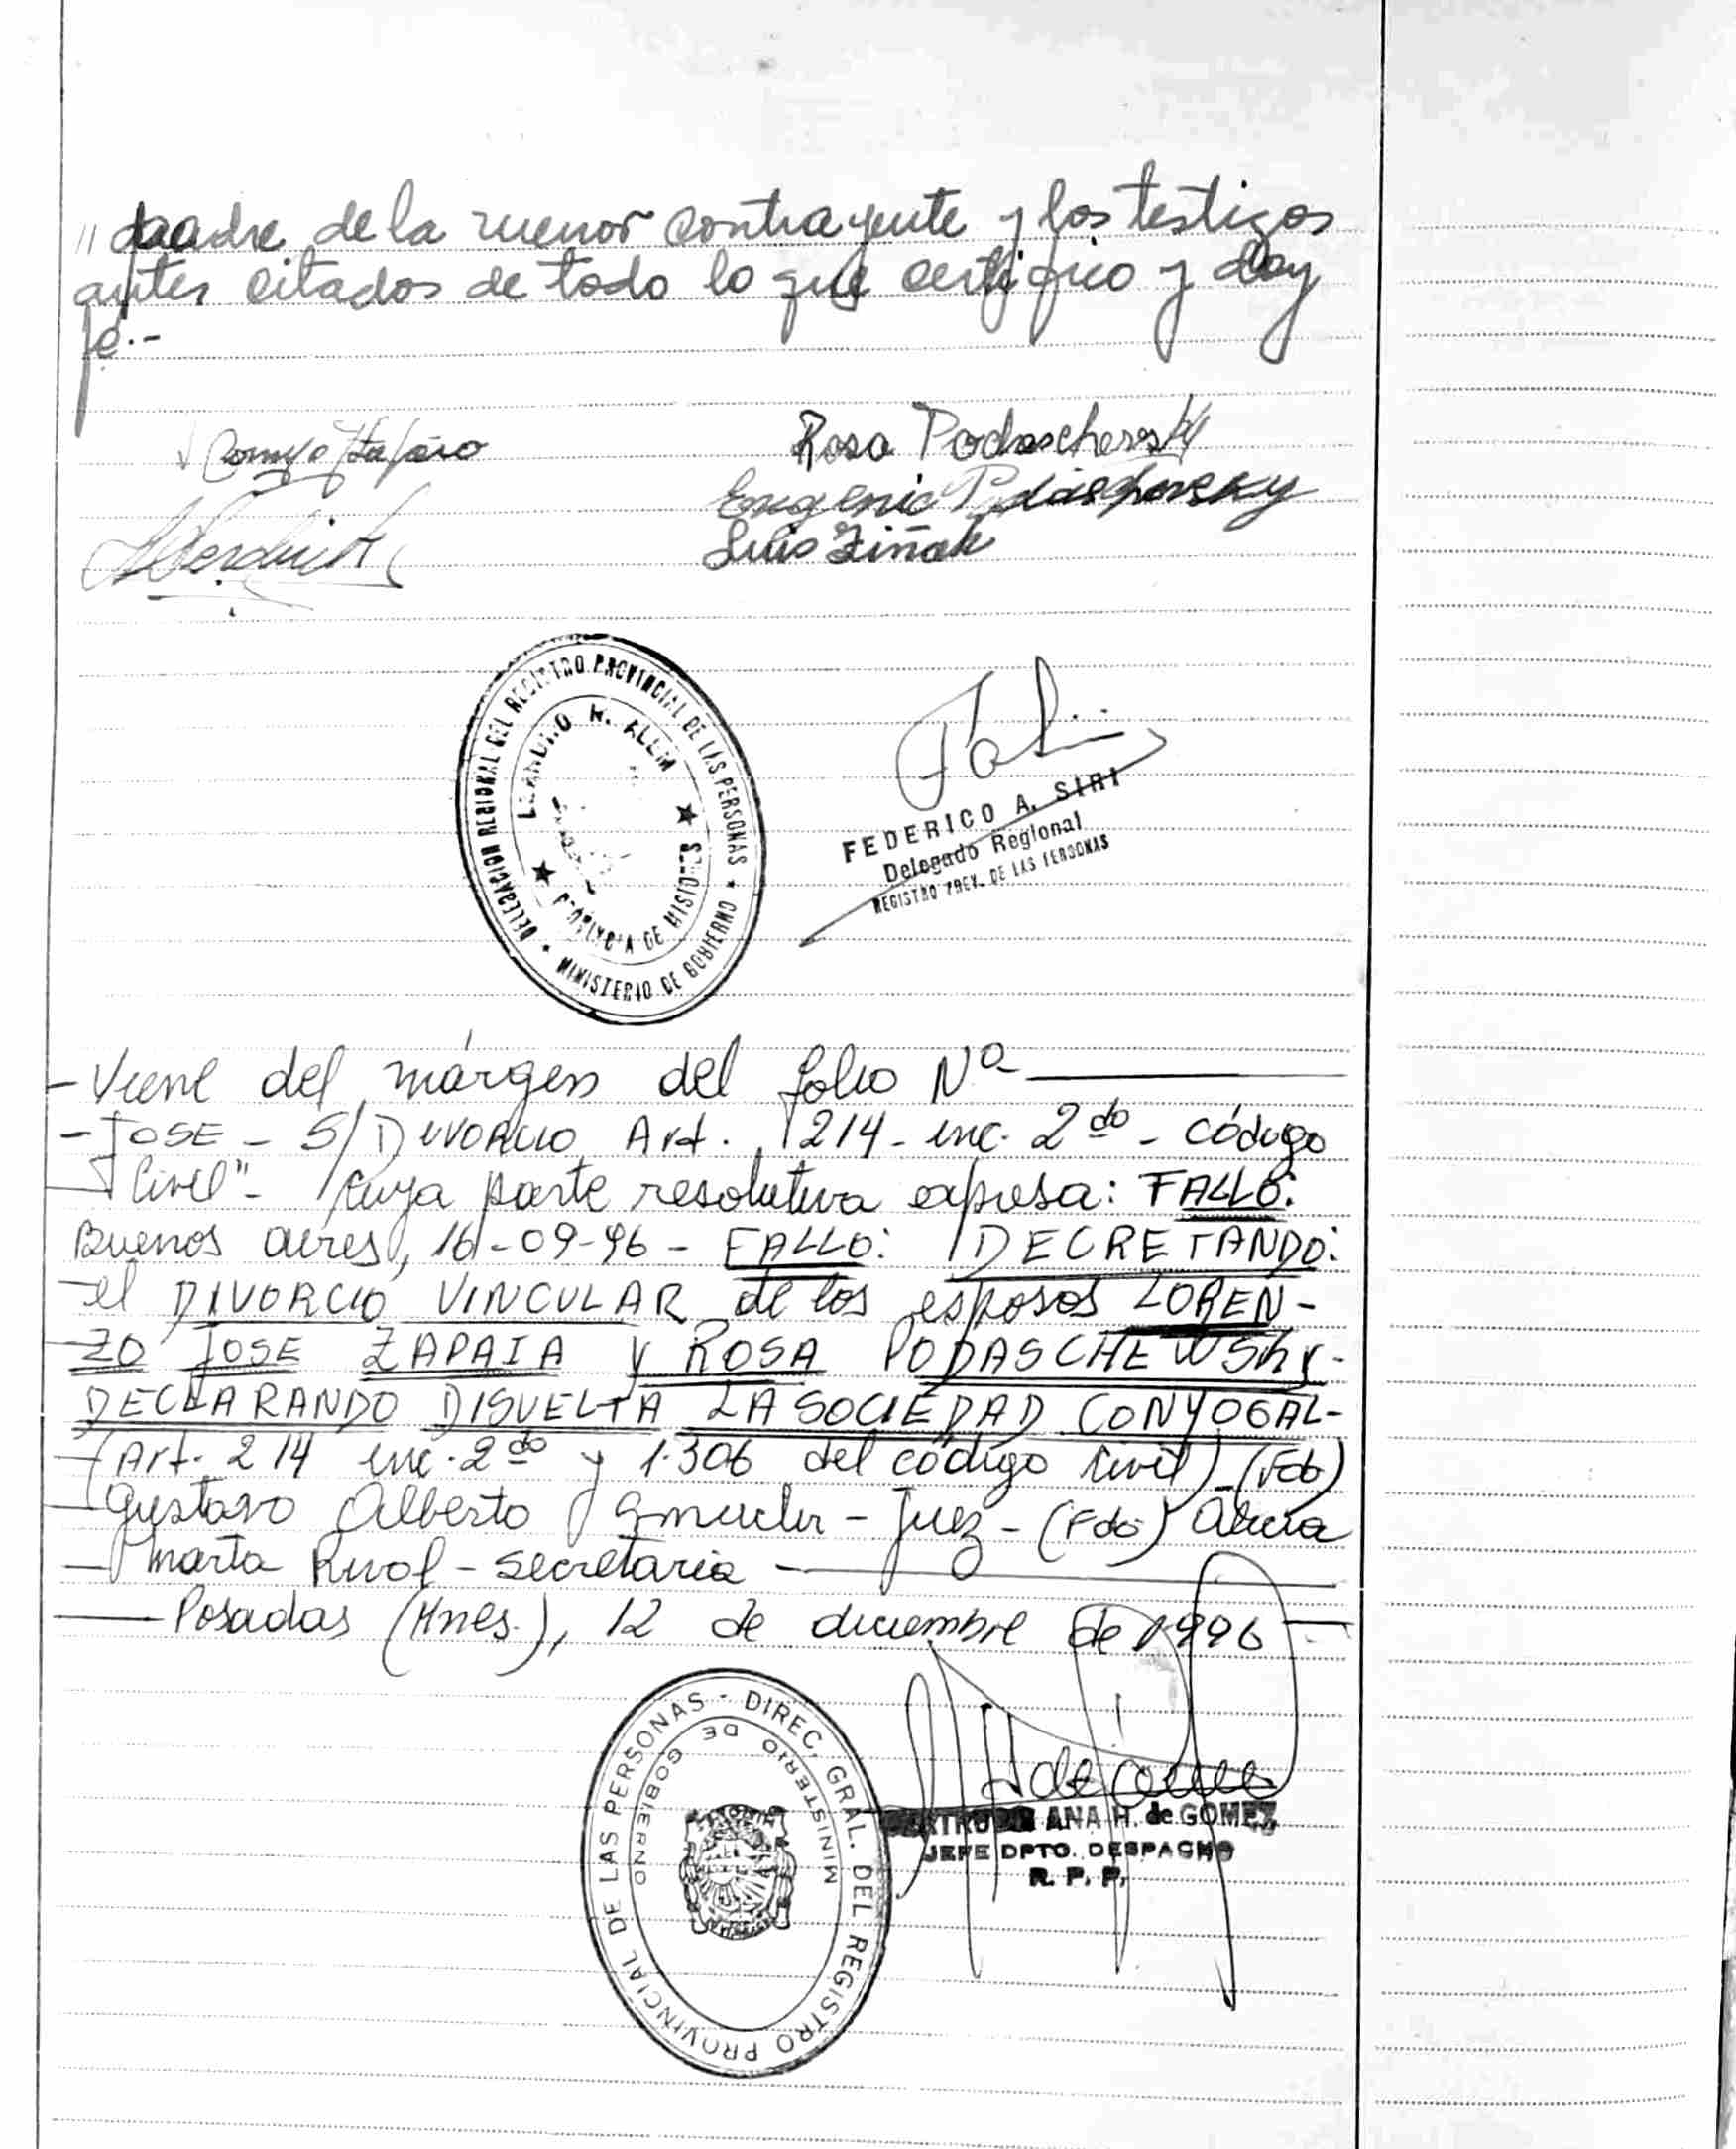 // padre de la menor contrayente y los testigos
antes citados de todo lo que certifico y doy
fe.-
Rosa Podaschewsky
Eugenio Podaschevsky
Luis Ziñak
DELEGACION REGIONAL DEL REGISTRO PROVINCIAL DE LAS PERSONAS * MINISTERIO DE GOBIERNO *
LEANDRO N. ALEM
PROVINCIA DE MISIONES
FEDERICO A. SIRI
Delegado Regional
REGISTRO PROV. DE LAS PERSONAS
- Viene del márgen del folio Nº
- JOSE - S/ Divorcio Art. 214 - inc. 2do - código
Civil" - Cuya parte resolutiva expresa: FALLO:
Buenos aires, 16-09-96 - FALLO: DECRETANDO:
el DIVORCIO VINCULAR de los esposos LOREN-
ZO JOSE ZAPAIA y ROSA PODASCHEWSky-
DECLARANDO DISUELTA LA SOCIEDAD CONYOGAL-
(Art. 214 inc. 2do y 1.306 del código civil) (Fdo)
Gustavo Alberto - Juez - (Fdo) Alicia
Marta - secretaria -
Posadas (Mnes.), 12 de diciembre de 1996
DIREC. GRAL. DEL REGISTRO PROVINCIAL DE LAS PERSONAS -
MINISTERIO DE GOBIERNO
ANA H. de GOMEZ
JEFE DPTO. DESPACHO
R. P. P.